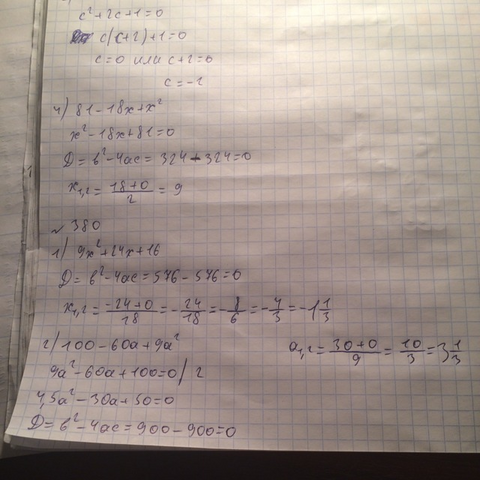 c²+2c+1=0
c(c+2)+1=0
c=0 или c+2=0
c=-2
4) 81-18x+x²
x²-18x+81=0
D=b²-4ac=324-324=0
x₁,₂=(18+0)/2=9
№380
1) 9x²+24x+16
D=b²-4ac=576-576=0
x₁,₂=(-24+0)/18=-24/18=-8/6=-4/3=-1 1/3
2) 100-60a+9a²
9a²-60a+100=0 / 2
4,5a²-30a+50=0
D=b²-4ac=900-900=0
a₁,₂=(30+0)/9=10/3=3 1/3